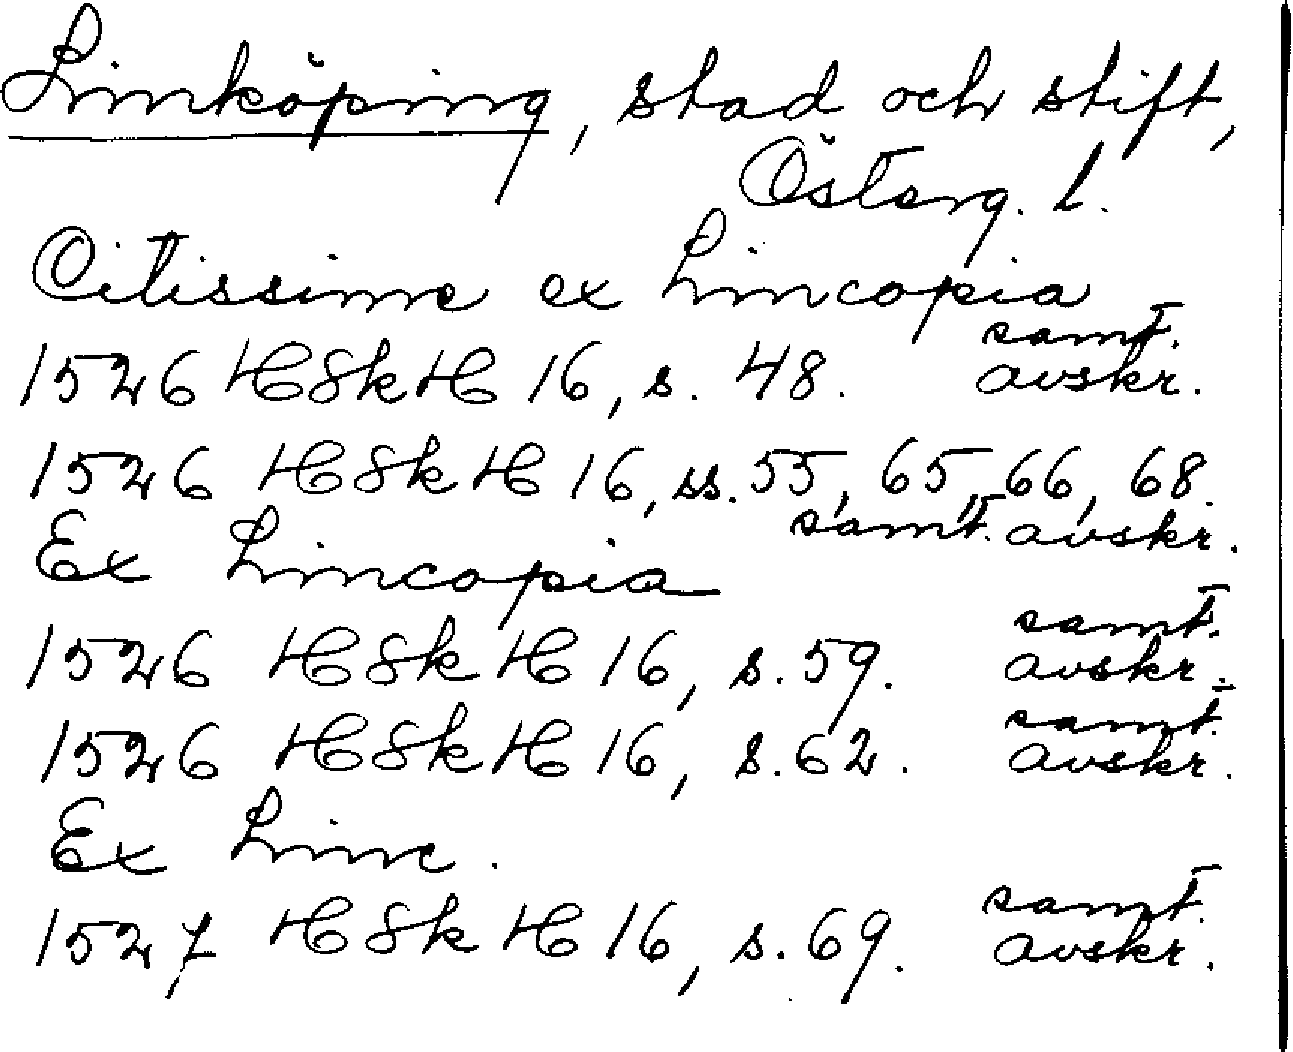 Linköping, stad och stift,
Österg. l.
Citissime ex Lincopia
1526 HSkH 16, s. 48. samt. avskr.
1526 HSkH 16, ss. 55, 65, 66, 68.
samt. avskr.
Ex Lincopia
1526 HSkH 16, s. 59. samt. avskr.
1526 HSkH 16, s. 62. samt. avskr.
Ex Linc.
1527 HSkH 16, s. 69. samt. avskr.